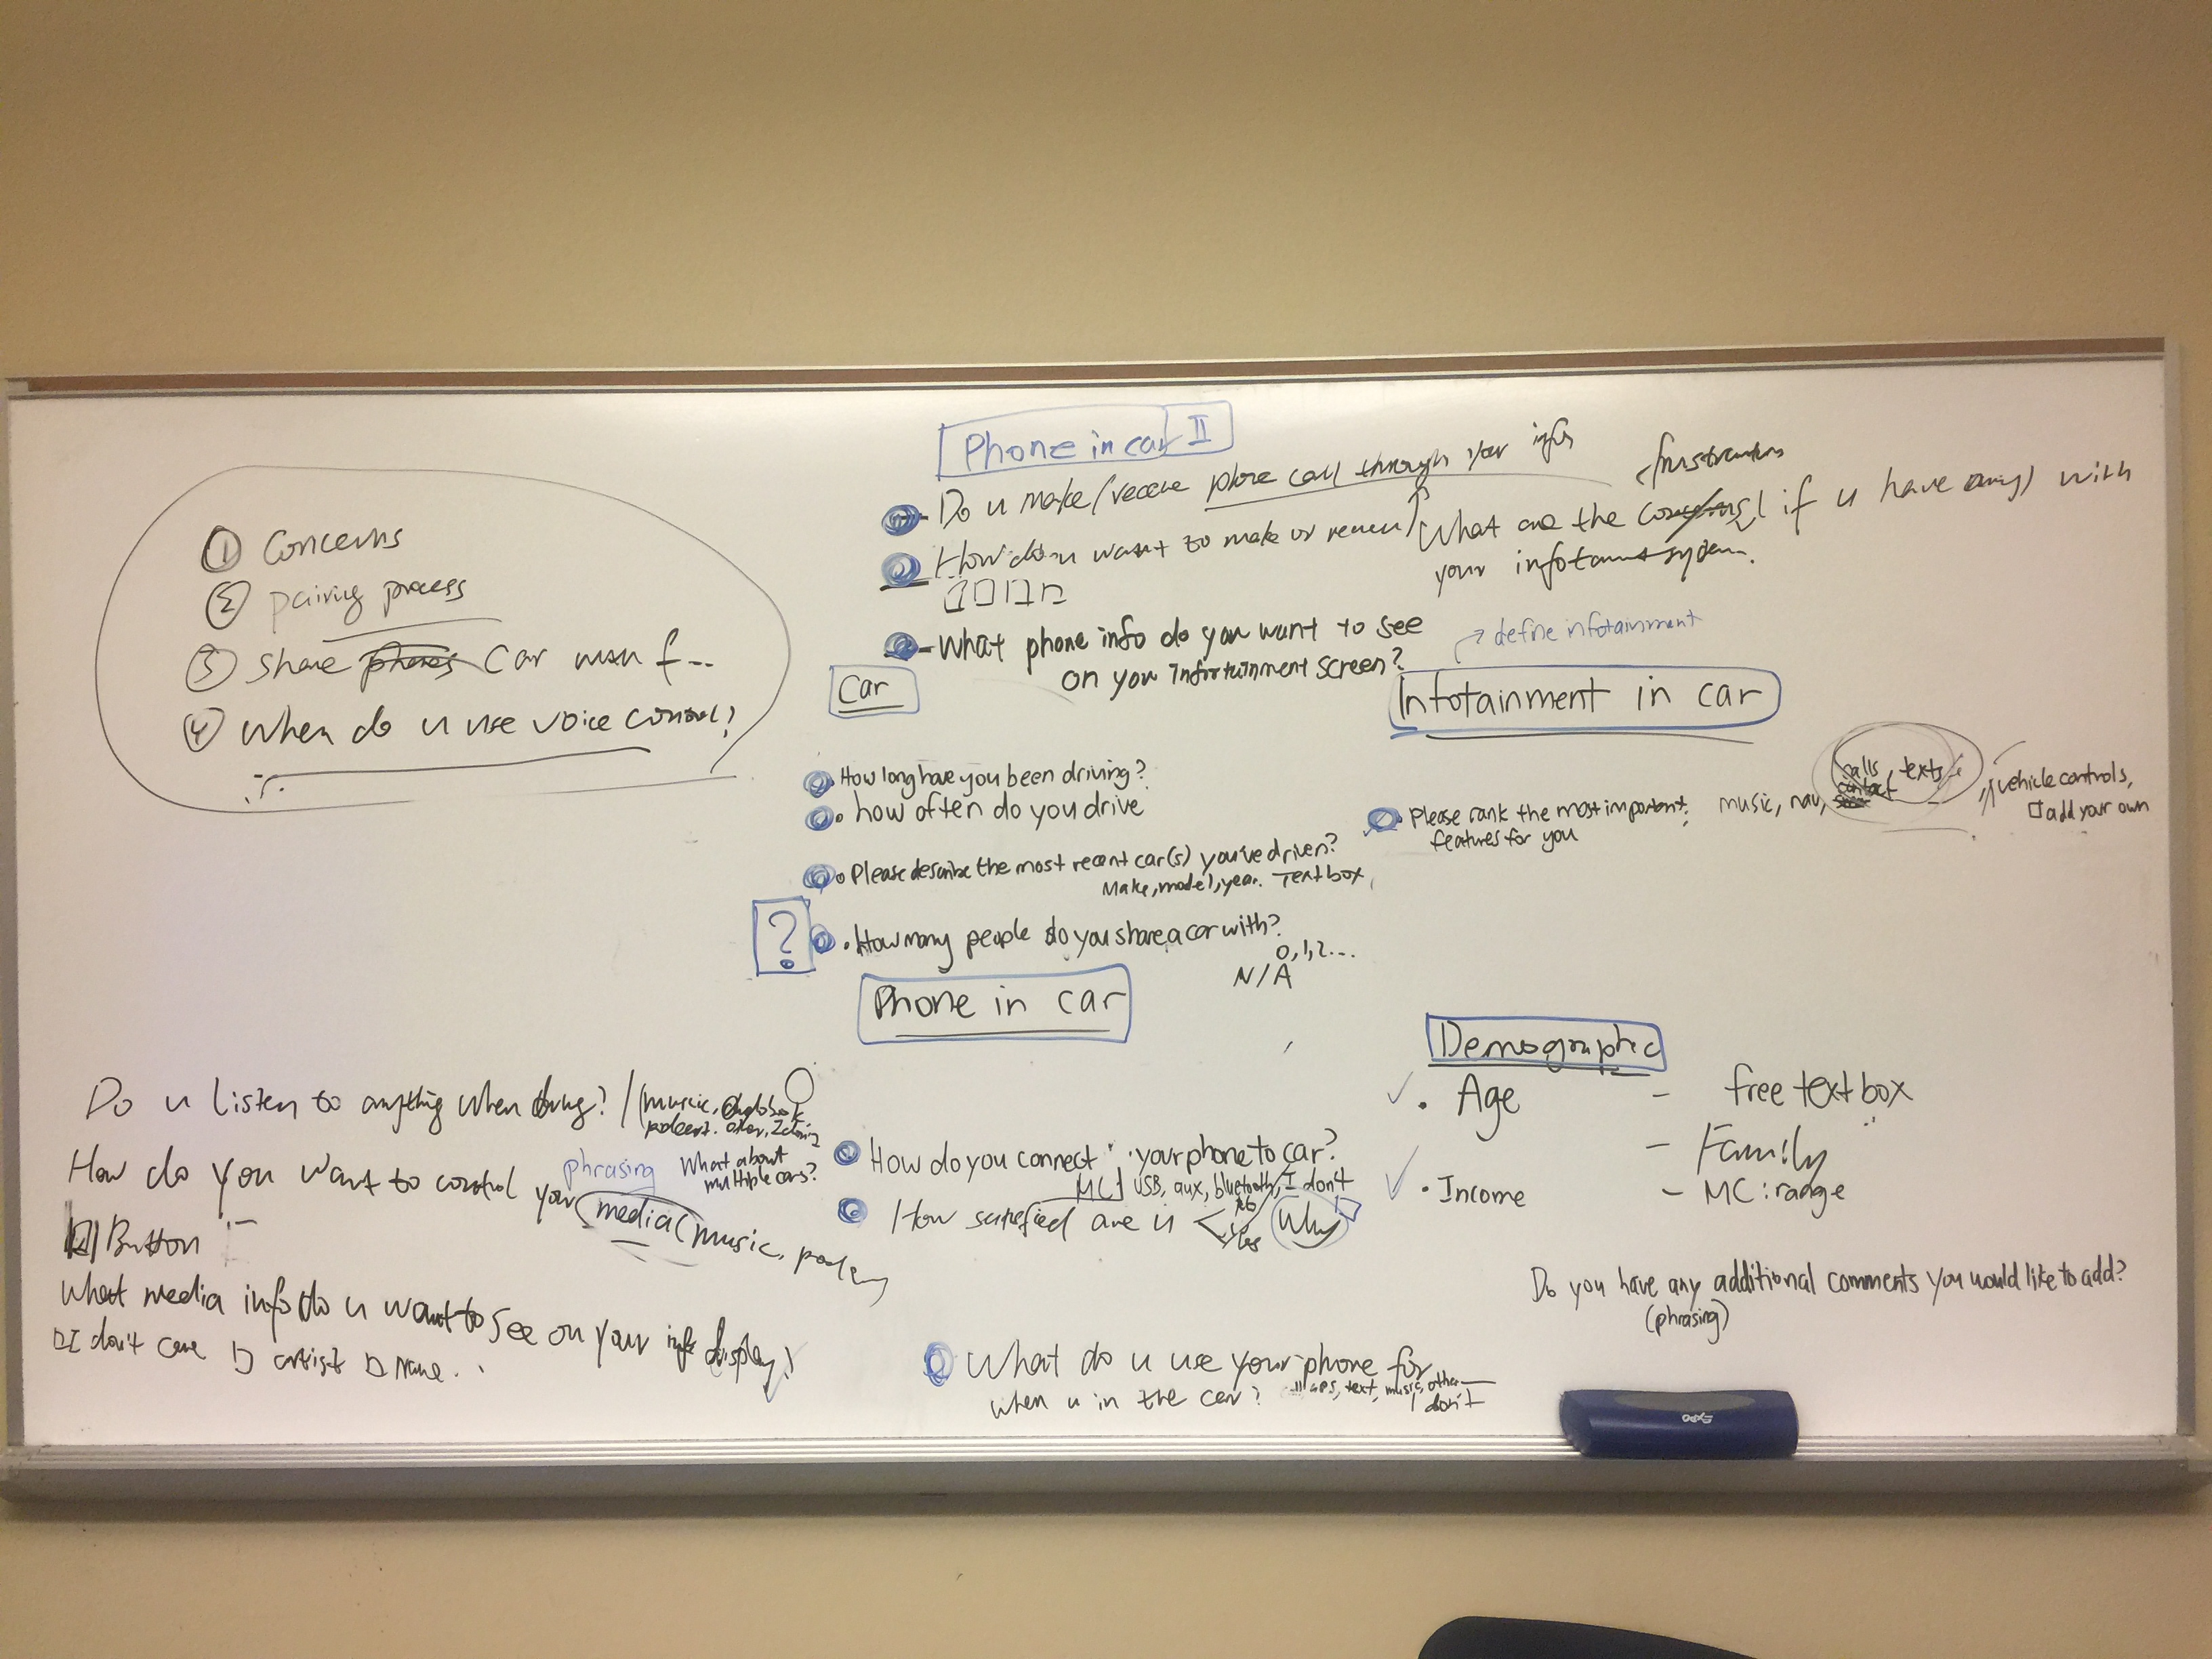 ① Concerns
② pairing process
③ share phones car
④ when do u use voice control?
Phone in car II
Do u make/receive phone call through your info
How do u want to make or
frustrations
What are the if u have any) with
your infotainment system.
What phone info do you want to see
on your Infortainment screen?
→ define infotainment
Car
How long have you been driving?
how often do you drive
Please describe the most recent car(s) you've driven?
Make, model, year. Text box
?
How many people do you share a car with?
0, 1, 2...
N/A
Infotainment in car
Please rank the most important: music, nav, calls, texts
contact
features for you
vehicle controls,
□ add your own
Phone in car
How do you connect your phone to car?
MC] USB, aux, bluetooth, I don't
How satisfied are u < No
Yes
Why
What do u use your phone for
when u in the car? GPS, text, music, other
I don't
Demographic
Age - free text box
- Family
Income - MC: range
Do you have any additional comments you would like to add?
(phrasing)
Do u listen to anything when driving? / (music,
How do you want to control your media (music,
phrasing
What about
multiple cars?
Button
What media info do u want to see on your info display?
□ I don't care □ artist □ Name.
Expo